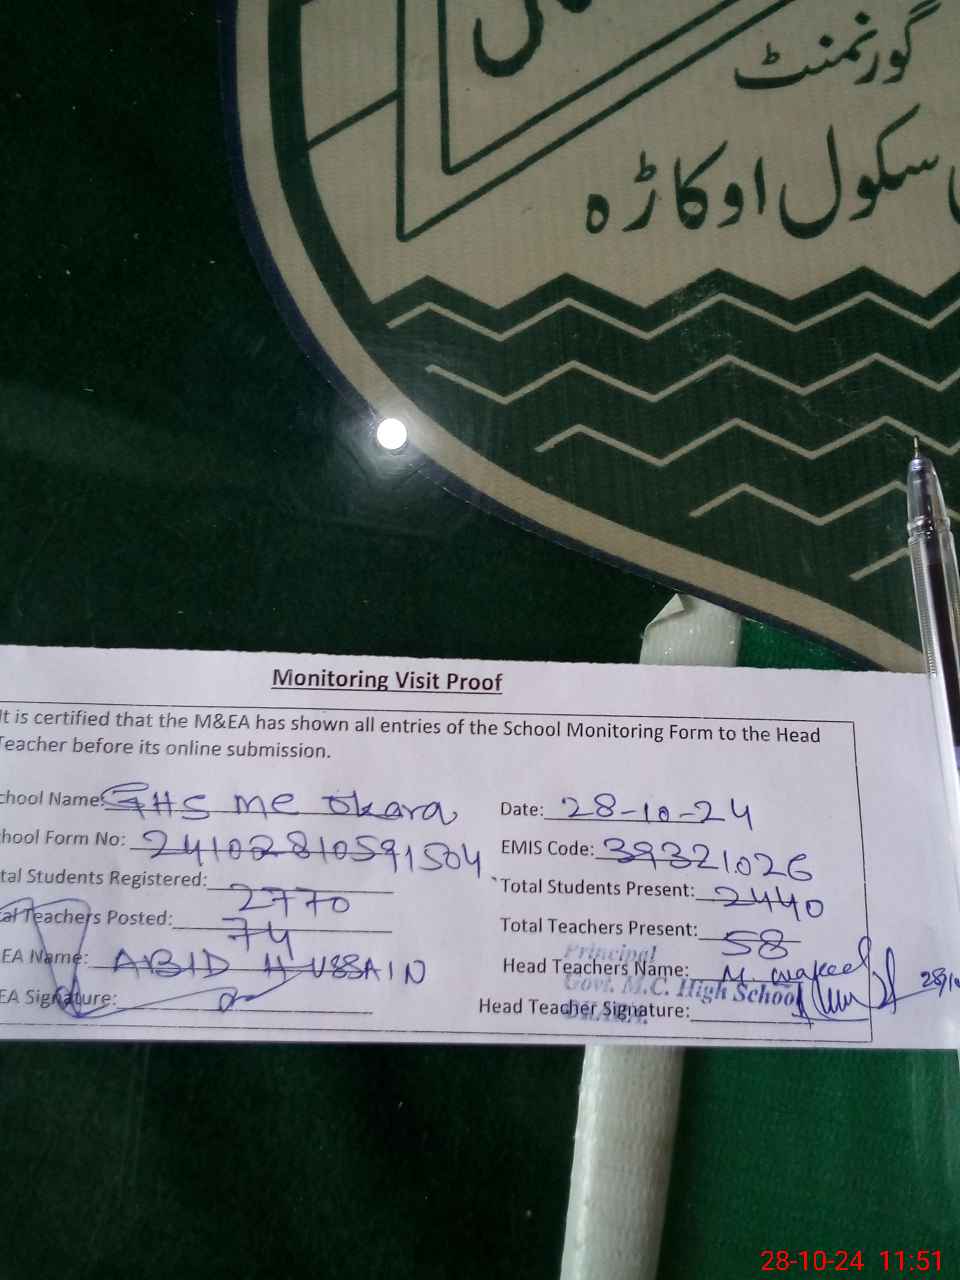 گورنمنٹ
سکول اوکاڑہ
Monitoring Visit Proof
It is certified that the M&EA has shown all entries of the School Monitoring Form to the Head
Teacher before its online submission.
chool Name: GHS MC Okara Date: 28-10-24
hool Form No: 24102810591504 EMIS Code: 39321026
tal Students Registered: 2770 Total Students Present: 2440
al Teachers Posted: 74 Total Teachers Present: 58
Principal
EA Name: ABID HUSSAIN Head Teachers Name: M. Wakeel
Govt. M.C. High School
EA Signature: Head Teacher Signature:
28-10-24 11:51